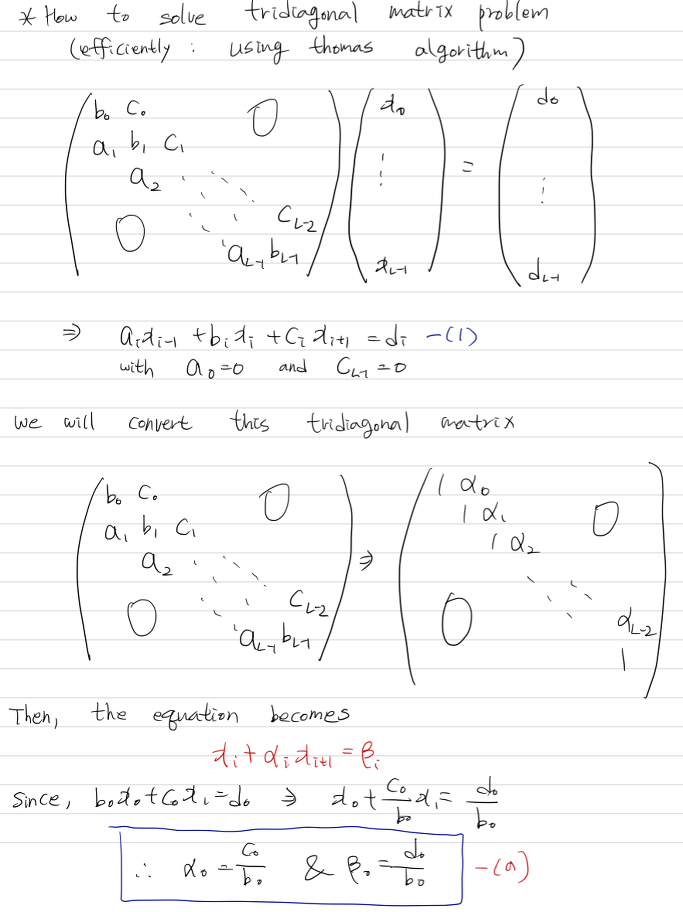 * How to solve tridiagonal matrix problem
(efficiently : using thomas algorithm)
b₀ c₀ 0 x₀ d₀
a₁ b₁ c₁
a₂ ⋱ ⋱ ⋮ = ⋮
0 c_{L-2}
a_{L-1} b_{L-1} x_{L-1} d_{L-1}
⇒ aᵢxᵢ₋₁ + bᵢxᵢ + cᵢxᵢ₊₁ = dᵢ -(1)
with a₀=0 and c_{L-1}=0
we will convert this tridiagonal matrix
b₀ c₀ 0 1 α₀
a₁ b₁ c₁ 1 α₁ 0
a₂ ⋱ ⋱ ⇒ 1 α₂
0 c_{L-2} 0 ⋱ ⋱ α_{L-2}
a_{L-1} b_{L-1} 1
Then, the equation becomes
xᵢ + αᵢxᵢ₊₁ = βᵢ
Since, b₀x₀+c₀x₁=d₀ ⇒ x₀ + c₀/b₀ x₁ = d₀/b₀
∴ α₀ = c₀/b₀ & β₀ = d₀/b₀ -(a)